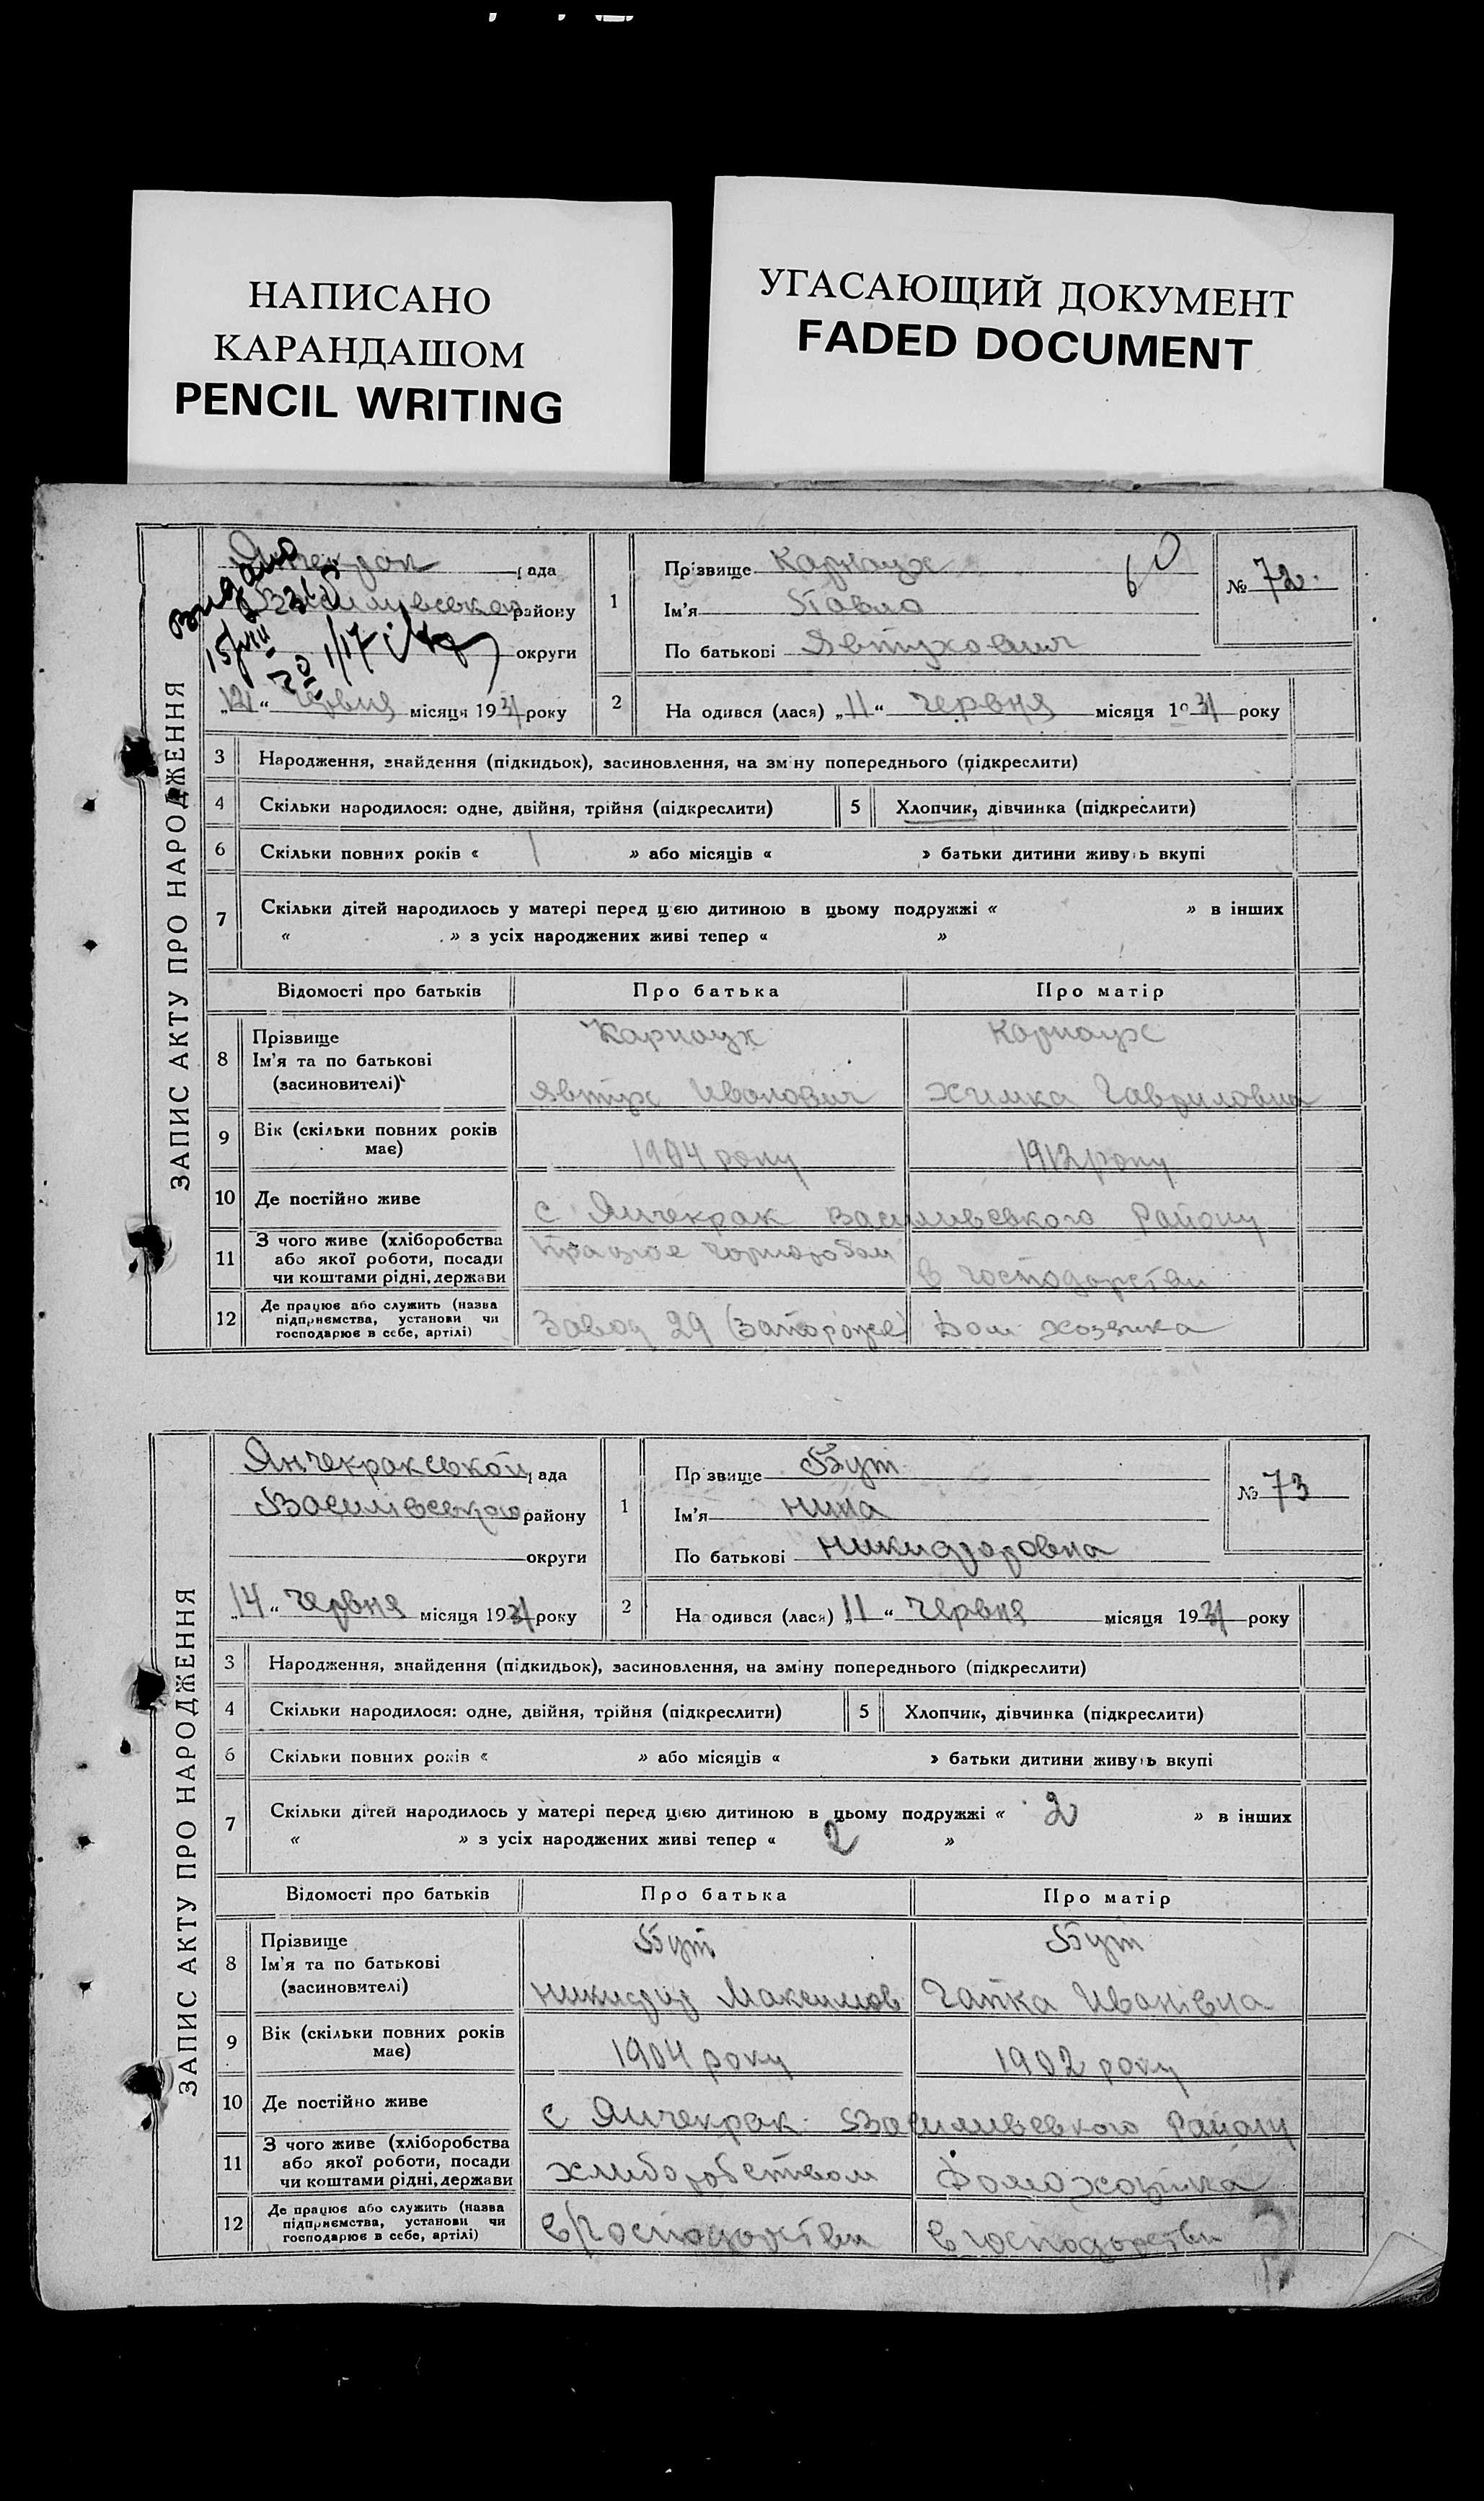 НАПИСАНО
КАРАНДАШОМ
PENCIL WRITING
УГАСАЮЩИЙ ДОКУМЕНТ
FADED DOCUMENT
ЗАПИС АКТУ ПРО НАРОДЖЕННЯ
рада
району
округи
"12" червня місяця 1931 року
1
Прізвище Карнаух
Ім'я Павло
По батькові Явтухович
60
№ 72
2 На одився (лася) „11“ червня місяця 1931 року
3 Народження, знайдення (підкидьок), засиновлення, на зміну попереднього (підкреслити)
4 Скільки народилося: одне, двійня, трійня (підкреслити) 5 Хлопчик, дівчинка (підкреслити)
6 Скільки повних років « 1 » або місяців « » батьки дитини живуть вкупі
7 Скільки дітей народилось у матері перед цією дитиною в цьому подружжі « » в інших
« » з усіх народжених живі тепер « »
Відомості про батьків Про батька Про матір
8 Прізвище Ім'я та по батькові (засиновителі) Карнаух Карнаух
Явтух Иванович Химка Гавриловна
9 Вік (скільки повних років має) 1904 року 1912 року
10 Де постійно живе с Янчекрак Василивського Району
11 З чого живе (хліборобства або якої роботи, посади чи коштами рідні, держави Працює чорноробом в господарстви
12 Де працює або служить (назва підприємства, установи чи господарює в себе, артілі) Завод 29 (Запорожє) Дом хозяика
ЗАПИС АКТУ ПРО НАРОДЖЕННЯ
Янчекракськой рада
Василівського району
округи
„14“ червня місяця 1931 року
1
Прізвище Бут
Ім'я Нина
По батькові Никифоровна
№ 73
2 На одився (лася) „11“ червня місяця 1931 року
3 Народження, знайдення (підкидьок), засиновлення, на зміну попереднього (підкреслити)
4 Скільки народилося: одне, двійня, трійня (підкреслити) 5 Хлопчик, дівчинка (підкреслити)
6 Скільки повних років « » або місяців « » батьки дитини живуть вкупі
7 Скільки дітей народилось у матері перед цією дитиною в цьому подружжі « 2 » в інших
« » з усіх народжених живі тепер « 2 »
Відомості про батьків Про батька Про матір
8 Прізвище Ім'я та по батькові (засиновителі) Бут Бут
Никифір Максимов Гапка Иванівна
9 Вік (скільки повних років має) 1904 року 1902 року
10 Де постійно живе с Янчекрак Василивського Району
11 З чого живе (хліборобства або якої роботи, посади чи коштами рідні, держави хлиборобством Домохозяика
12 Де працює або служить (назва підприємства, установи чи господарює в себе, артілі) в господарстви в господарстви